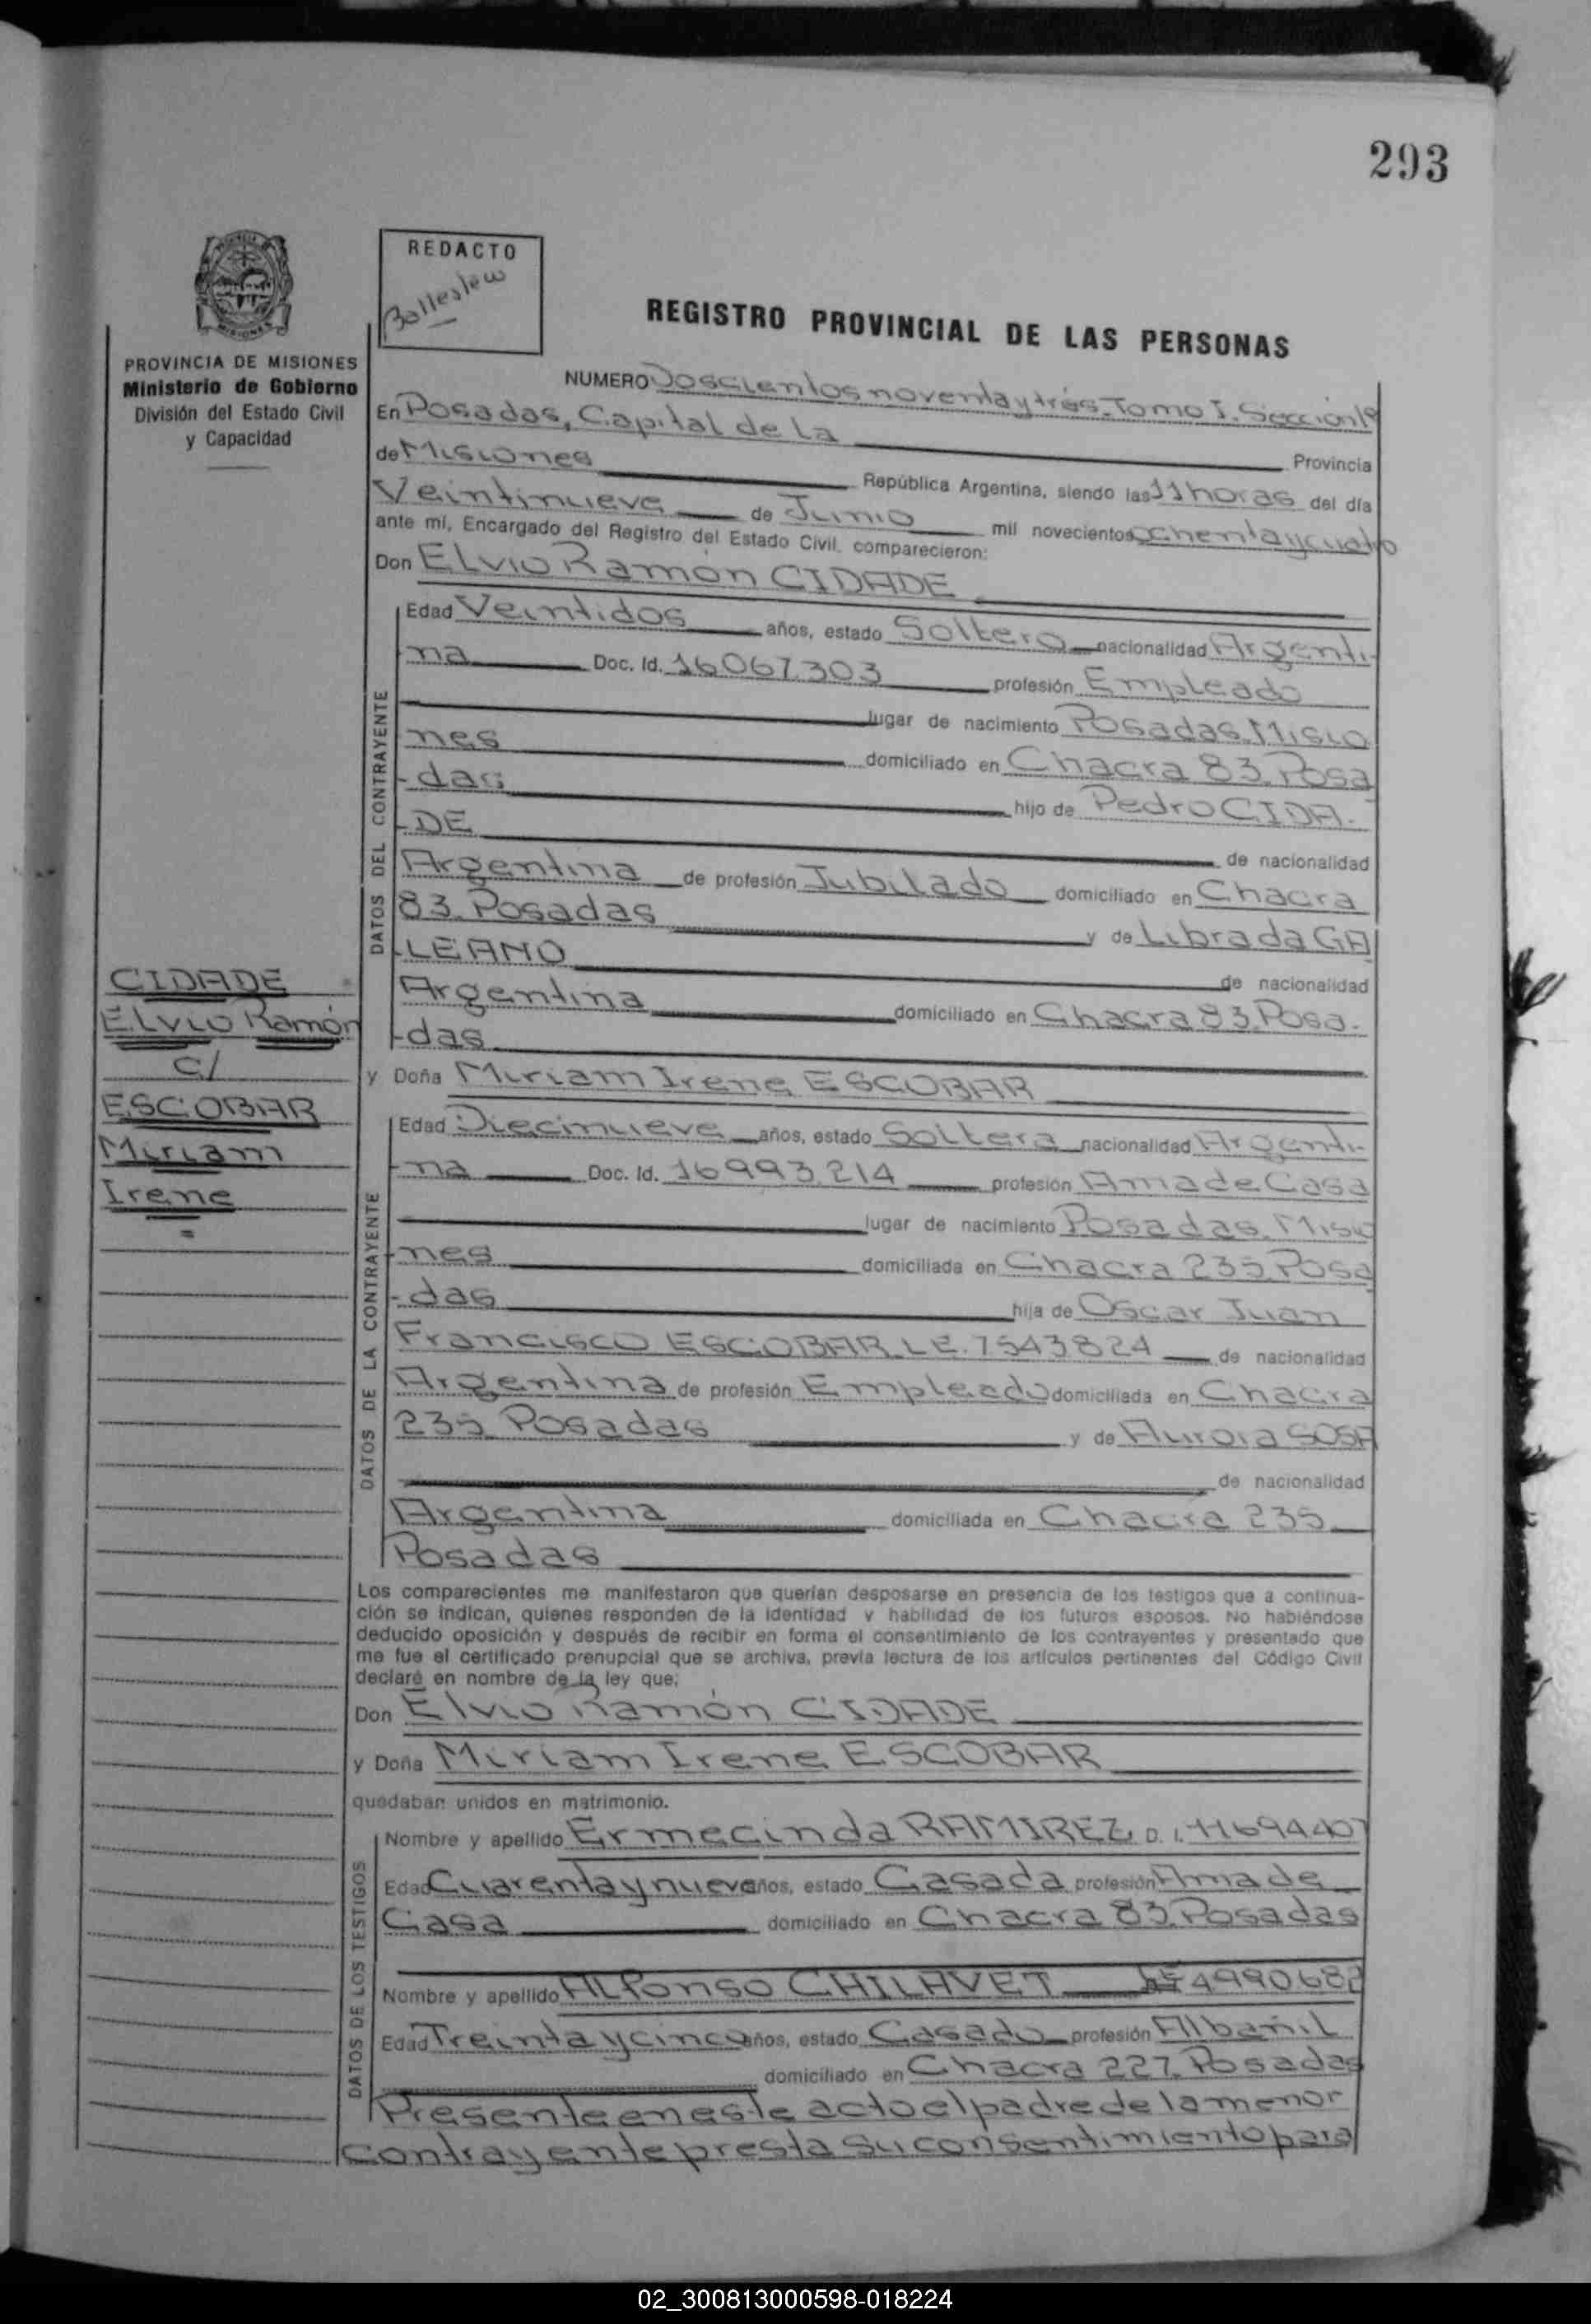 293
REDACTO
REGISTRO PROVINCIAL DE LAS PERSONAS
PROVINCIA DE MISIONES
Ministerio de Gobierno
División del Estado Civil
y Capacidad
NUMERO Doscientos noventa y trés. Tomo I. Sección 1ª
En Posadas, Capital de La Provincia
de Misiones República Argentina, siendo las 11 horas del día
Veintinueve de Junio mil novecientos ochenta y cuatro
ante mí, Encargado del Registro del Estado Civil, comparecieron:
Don Elvio Ramón CIDADE
DATOS DEL CONTRAYENTE
Edad Veintidos años, estado Soltero nacionalidad Argenti-
na Doc. Id. 16.067.303 profesión Empleado
lugar de nacimiento Posadas. Misio
nes domiciliado en Chacra 83. Posa
-das hijo de Pedro CIDA-
-DE de nacionalidad
Argentina de profesión Jubilado domiciliado en Chacra
83. Posadas y de Librada GA
LEANO de nacionalidad
Argentina domiciliado en Chacra 83. Posa-
-das
y Doña Miriam Irene ESCOBAR
CIDADE
Elvio Ramón
c/
ESCOBAR
Miriam
Irene
=
DATOS DE LA CONTRAYENTE
Edad Diecinueve años, estado Soltera nacionalidad Argenti-
-na Doc. Id. 16.993.214 profesión Ama de Casa
lugar de nacimiento Posadas. Misio
-nes domiciliada en Chacra 235. Posa
-das hija de Oscar Juan
Francisco ESCOBAR L.E. 7543824 de nacionalidad
Argentina de profesión Empleado domiciliada en Chacra
235. Posadas y de Aurora SOSA
de nacionalidad
Argentina domiciliada en Chacra 235
Posadas
Los comparecientes me manifestaron que querían desposarse en presencia de los testigos que a continua-
ción se indican, quienes responden de la identidad y habilidad de los futuros esposos. No habiéndose
deducido oposición y después de recibir en forma el consentimiento de los contrayentes y presentado que
me fue el certificado prenupcial que se archiva, previa lectura de los artículos pertinentes del Código Civil
declaré en nombre de la ley que:
Don Elvio Ramón CIDADE
y Doña Miriam Irene ESCOBAR
quedaban unidos en matrimonio.
DATOS DE LOS TESTIGOS
Nombre y apellido Ermecinda RAMIREZ D. I. 11694407
Edad Cuarenta y nueve años, estado Casada profesión Ama de
Casa domiciliado en Chacra 83. Posadas
Nombre y apellido Alfonso CHILAVET 4990682
Edad Treinta y cinco años, estado Casado profesión Albañil
domiciliado en Chacra 227. Posadas
Presente en este acto el padre de la menor
contrayente presta su consentimiento para
02_300813000598-018224